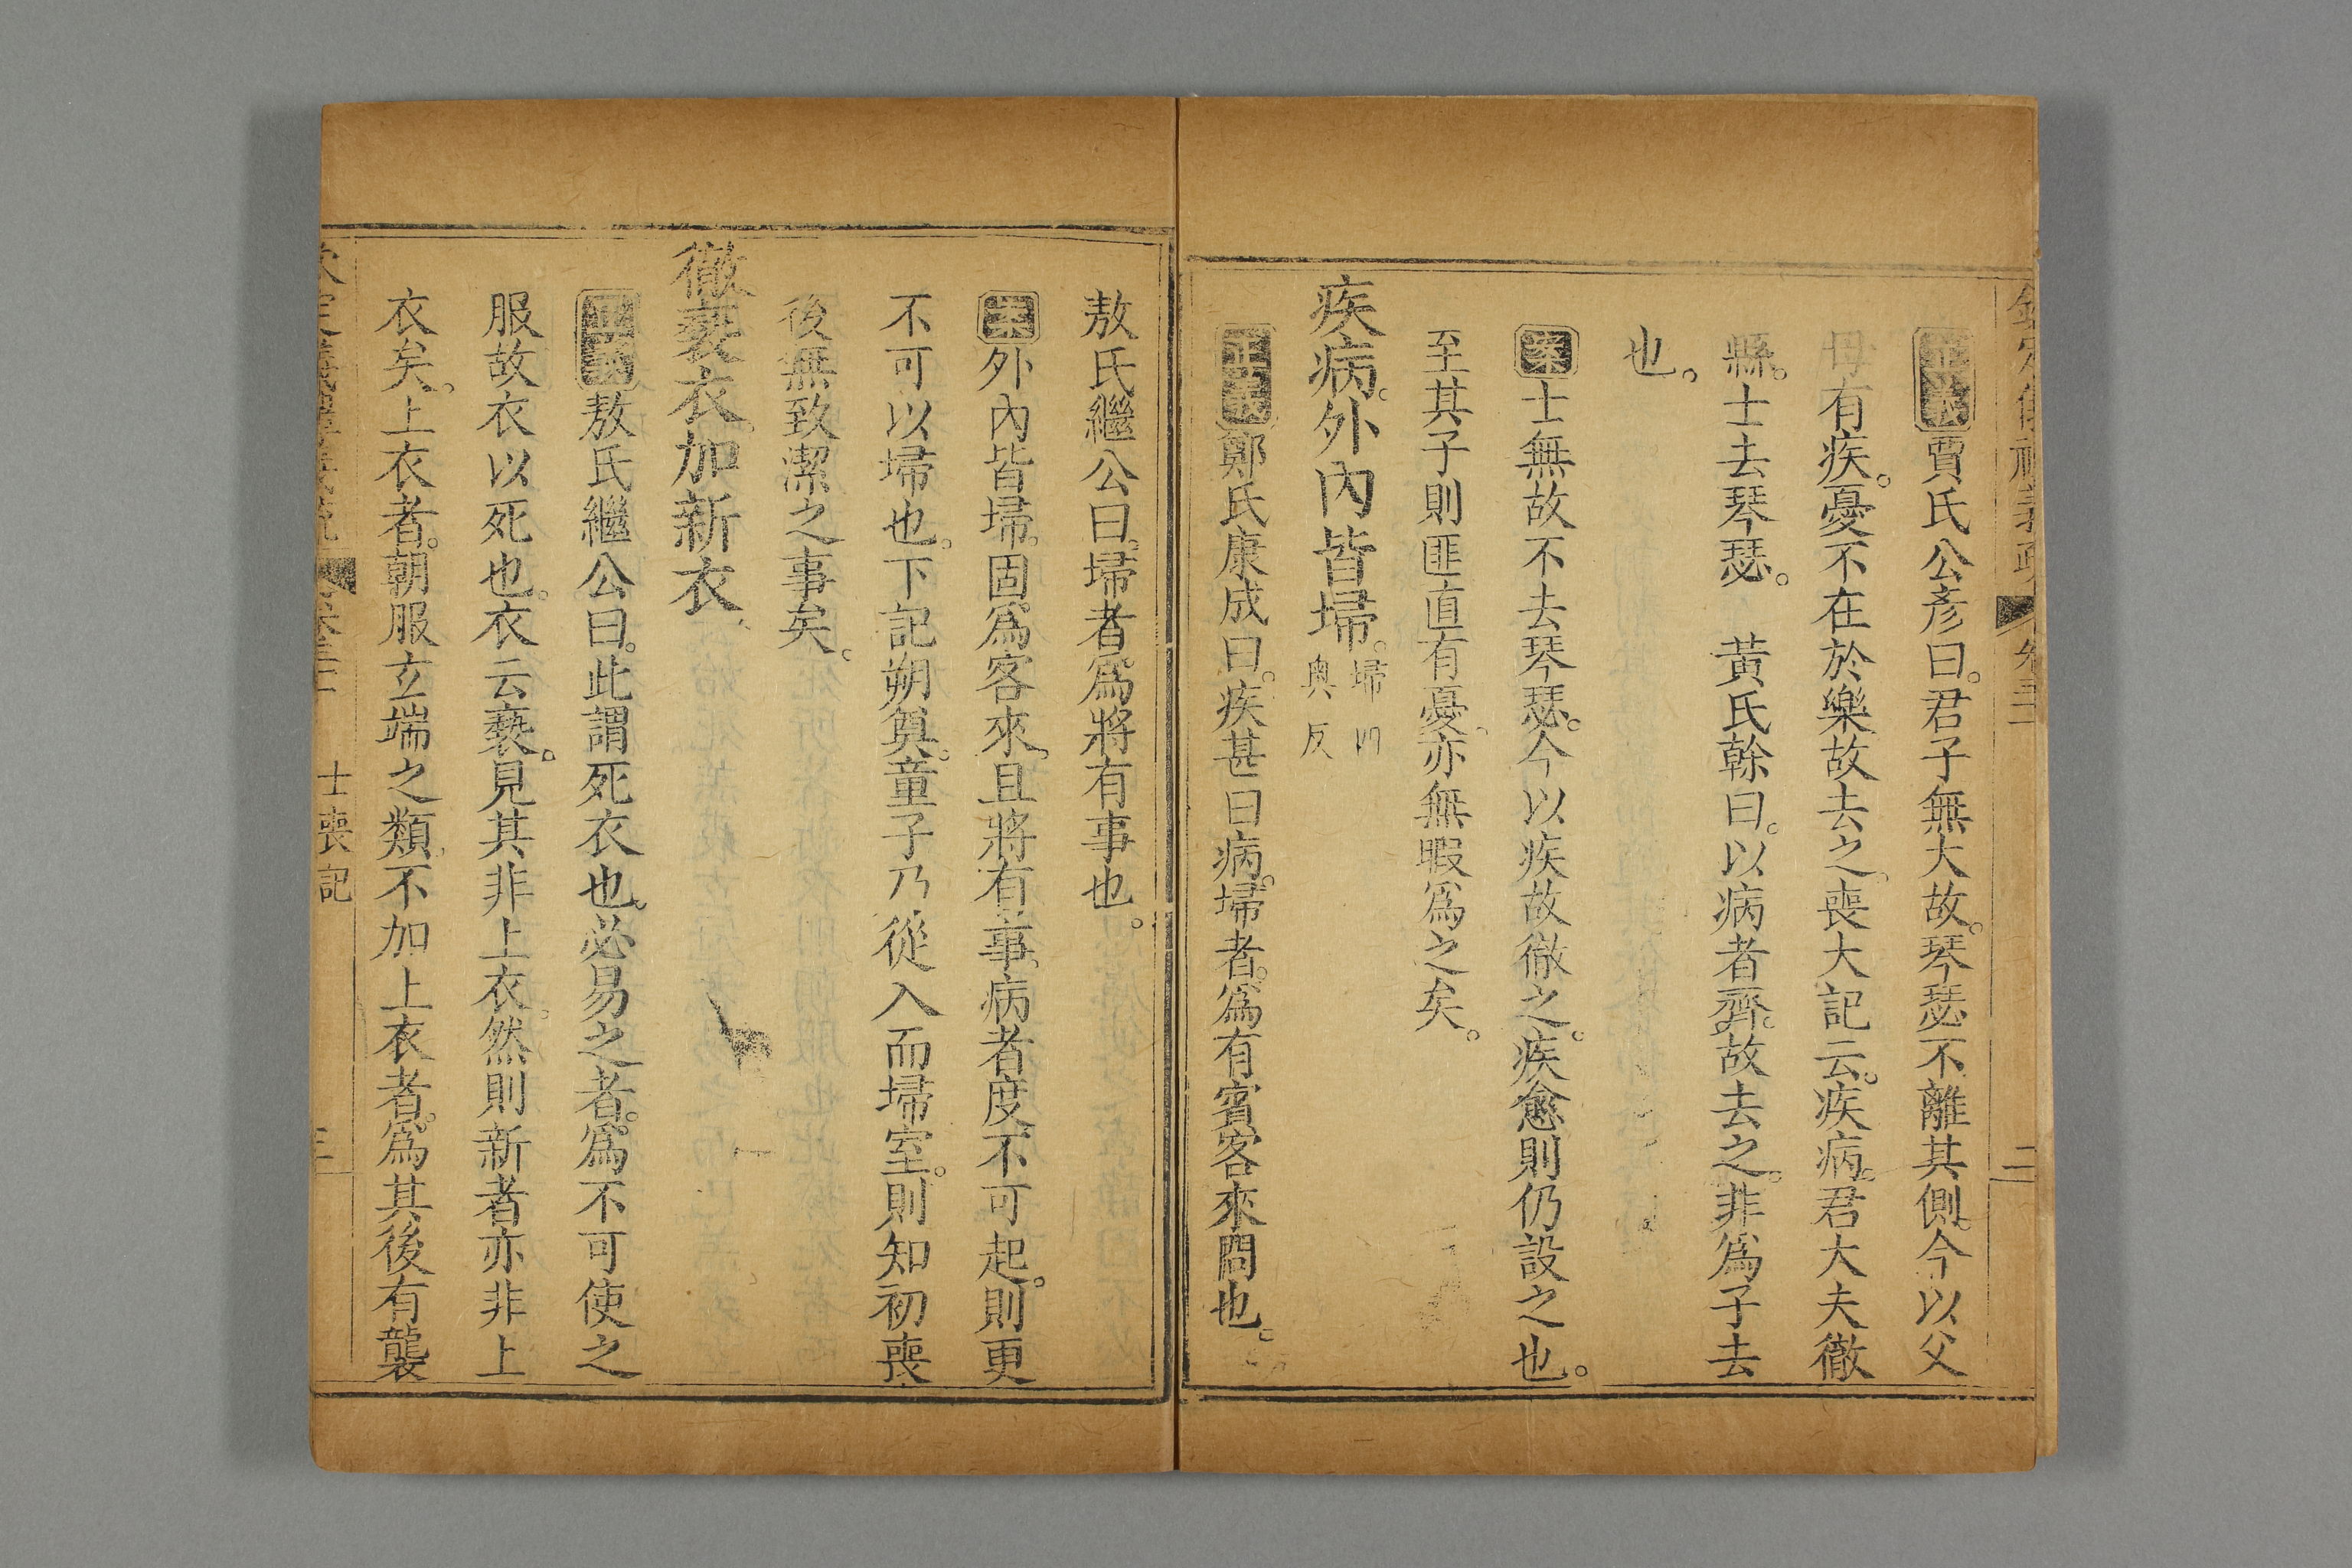 正義賈氏公彥曰。君子無大故。琴瑟不離其側。今以父
母有疾。憂不在於樂故去之。喪大記云。疾病。君大夫徹
縣。士去琴瑟。 黃氏榦曰。以病者齊。故去之。非爲子去
也。
案士無故不去琴瑟。今以疾故徹之。疾愈則仍設之也。
至其子則匪直有憂。亦無暇爲之矣。
疾病。外內皆埽。埽
奧反
正義鄭氏康成曰。疾甚曰病。埽者。爲有賓客來問也。
敖氏繼公曰。埽者。爲將有事也。
案外內皆埽。固爲客來。且將有事。病者度不可起。則更
不可以埽也。下記朔奠。童子乃從入而埽室。則知初喪
後無致潔之事矣。
徹褻衣。加新衣。
正義敖氏繼公曰。此謂死衣也。必易之者。爲不可使之
服故衣以死也。衣云褻。見其非上衣。然則新者亦非上
衣矣。上衣者。朝服玄端之類。不加上衣者。爲其後有襲
士喪記